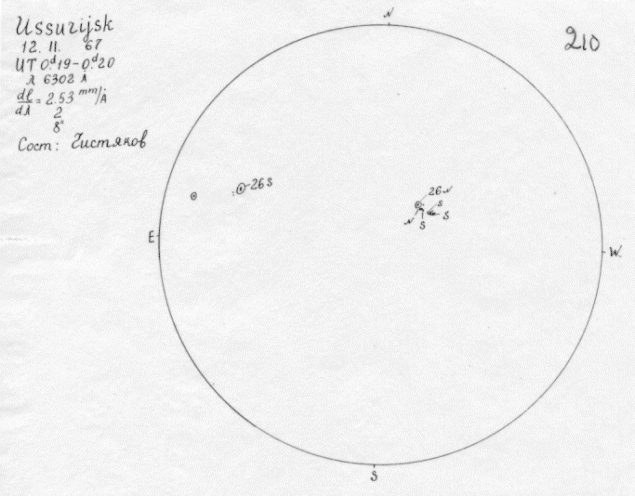 Ussurijsk
12. 11. 67
UT 0.d19-0.d20
λ 6302 Å
dl/dλ = 2.53 mm/Å
2
8"
Сост: Чистяков
210
N
26 S
26 N
S
N
S
S
E
W.
S